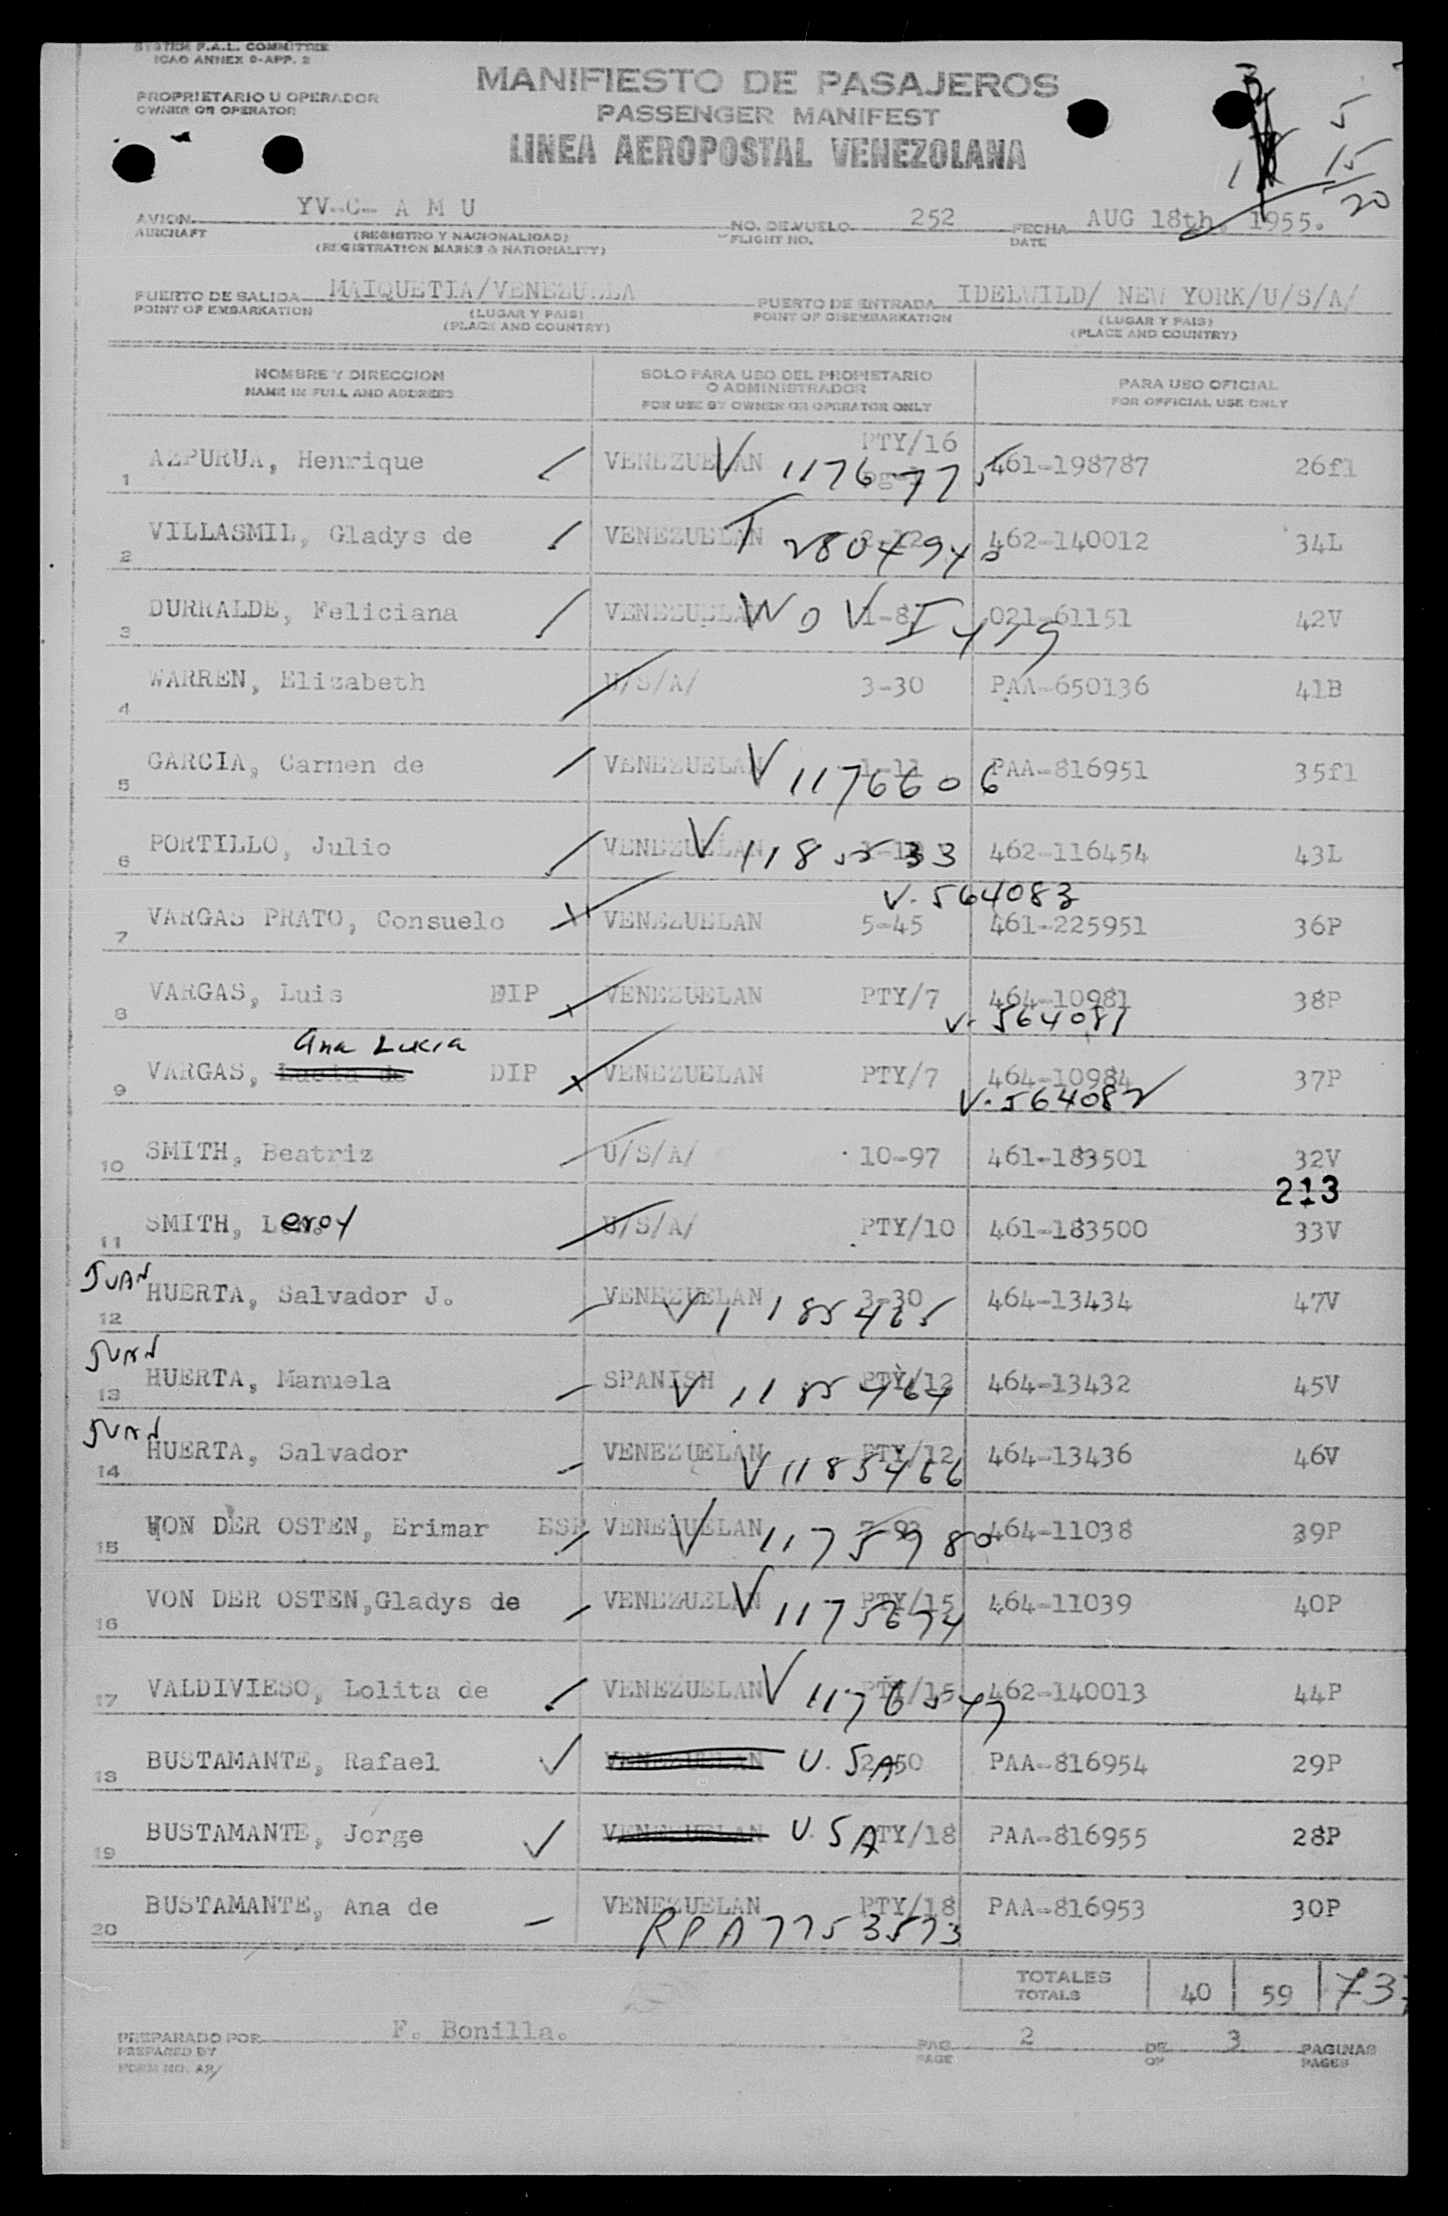 SYSTEM F.A.L. COMMITTEE
ICAO ANNEX 9-APP. 2
MANIFIESTO DE PASAJEROS
PROPRIETARIO U OPERADOR
OWNER OR OPERATOR
PASSENGER MANIFEST
LINEA AEROPOSTAL VENEZOLANA
5
15
20
AVION YV-C- A M U NO. DE VUELO 252 FECHA AUG 18th, 1955.
AIRCRAFT (REGISTRO Y NACIONALIDAD) FLIGHT NO. DATE
(REGISTRATION MARKS & NATIONALITY)
PUERTO DE SALIDA MAIQUETIA/VENEZUELA PUERTO DE ENTRADA IDELWILD/ NEW YORK/U/S/A/
POINT OF EMBARKATION (LUGAR Y PAIS) POINT OF DISEMBARKATION (LUGAR Y PAIS)
(PLACE AND COUNTRY) (PLACE AND COUNTRY)
NOMBRE Y DIRECCION SOLO PARA USO DEL PROPIETARIO O ADMINISTRADOR PARA USO OFICIAL
NAME IN FULL AND ADDRESS FOR USE BY OWNER OR OPERATOR ONLY FOR OFFICIAL USE ONLY
1 AZPURUA, Henrique VENEZUELAN PTY/16 V 1176775 461-198787 26fl
2 VILLASMIL, Gladys de VENEZUELAN T 2804940 462-140012 34L
3 DURRALDE, Feliciana VENEZUELAN 1-8 021-61151 42V
4 WARREN, Elizabeth U/S/A/ 3-30 PAA-650136 41B
5 GARCIA, Carmen de VENEZUELAN 1-11 V 1176606 PAA-816951 35fl
6 PORTILLO, Julio VENEZUELAN V 1185533 462-116454 43L
V. 564083
7 VARGAS PRATO, Consuelo VENEZUELAN 5-45 461-225951 36P
8 VARGAS, Luis DIP VENEZUELAN PTY/7 464-10981 38P
V. 564081
Ana Lucia
9 VARGAS, Lucia de DIP VENEZUELAN PTY/7 464-10984 37P
V. 564082
10 SMITH, Beatriz U/S/A/ 10-97 461-183501 32V
213
11 SMITH, Leroy U/S/A/ PTY/10 461-183500 33V
JUAN
12 HUERTA, Salvador J. VENEZUELAN 3-30 V 1185465 464-13434 47V
JUAN
13 HUERTA, Manuela SPANISH PTY/12 V 1185464 464-13432 45V
JUAN
14 HUERTA, Salvador VENEZUELAN PTY/12 V 1185466 464-13436 46V
15 VON DER OSTEN, Erimar ESP VENEZUELAN V 1175980 464-11038 39P
16 VON DER OSTEN,Gladys de VENEZUELAN PTY/15 V 1175674 464-11039 40P
17 VALDIVIESO, Lolita de VENEZUELAN PTY/15 V 1176547 462-140013 44P
18 BUSTAMANTE, Rafael VENEZUELAN U.SA 2-50 PAA-816954 29P
19 BUSTAMANTE, Jorge VENEZUELAN U.SA PTY/18 PAA-816955 28P
20 BUSTAMANTE, Ana de VENEZUELAN PTY/18 PAA-816953 30P
RPA7753573
TOTALES
TOTALS 40 59 737
PREPARADO POR F. Bonilla. PAG. 2 DE 3 PAGINAS
PREPARED BY PAGE OF PAGES
FORM NO. AR/